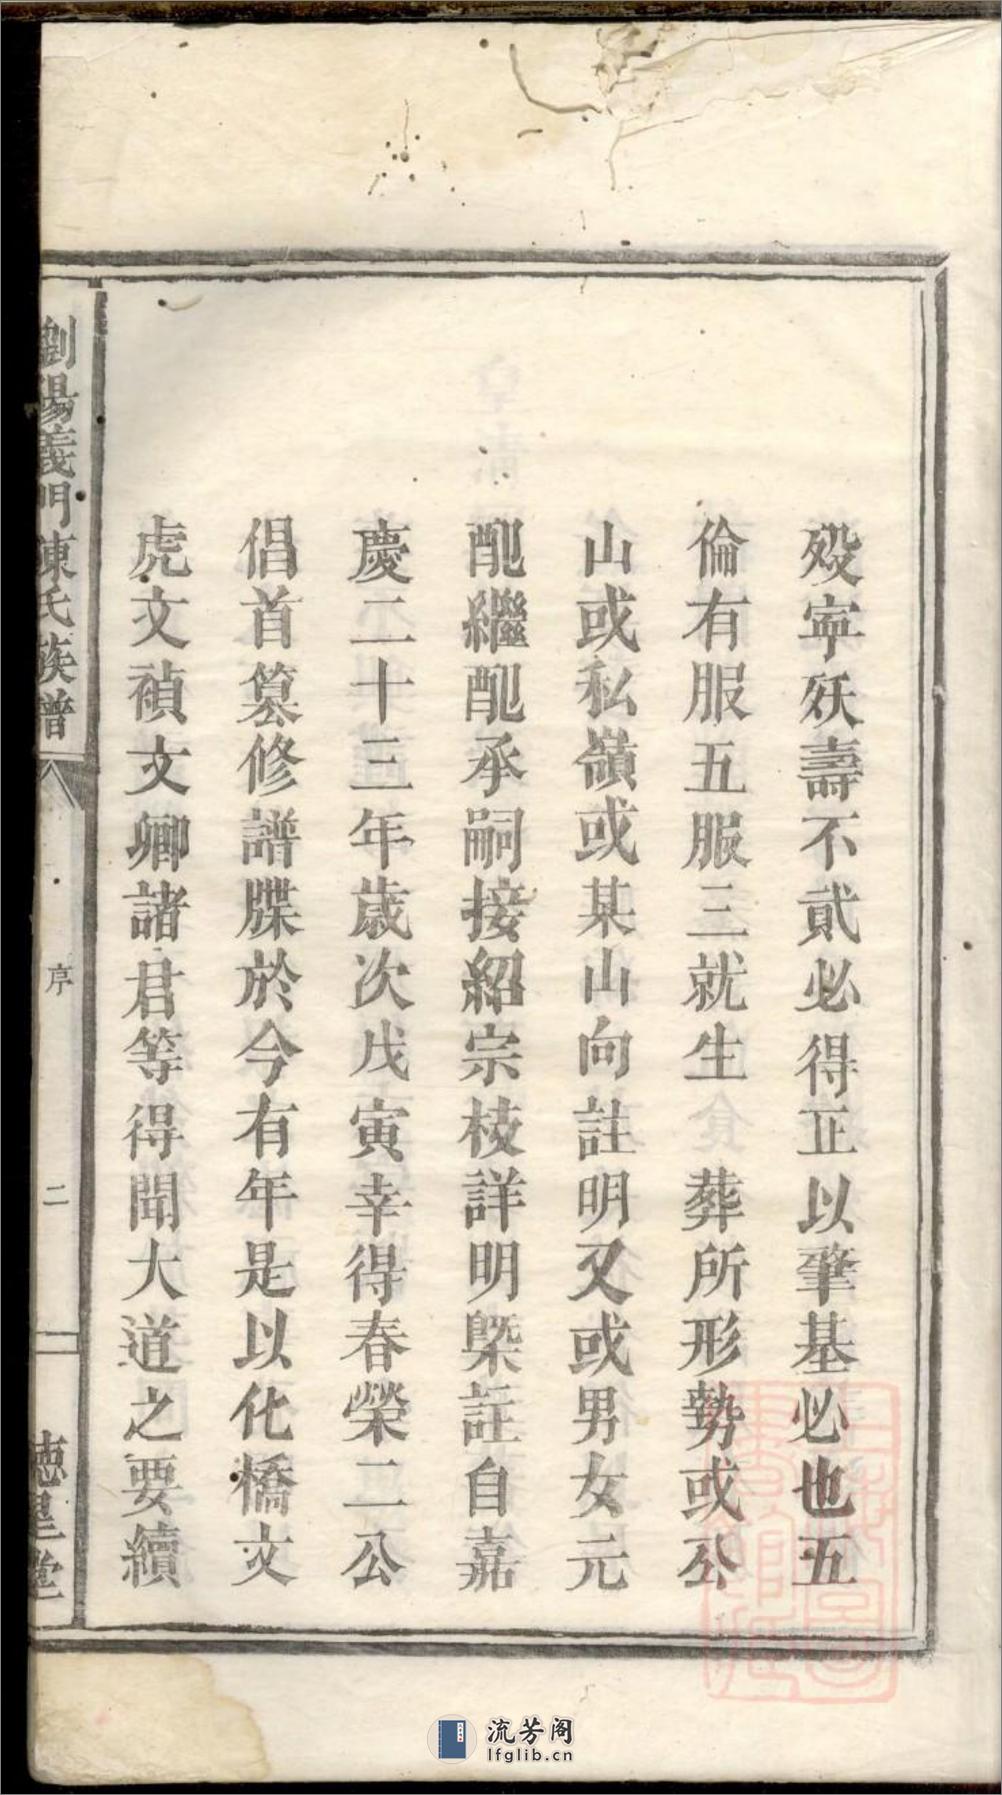 歿寧殀壽不貳必得正以肇基必也五
倫有服五服三就生食葬所形勢或公
山或私嶺或某山向註明又或男女元
配繼配承嗣接紹宗枝詳明槩註自嘉
慶二十三年歲次戊寅幸得春榮二公
倡首篡修譜牒於今有年是以化橋文
虎文禎文卿諸君等得聞大道之要續
劉陽義門陳氏族譜
序
二
德星堂
流芳阁
lfglib.cn